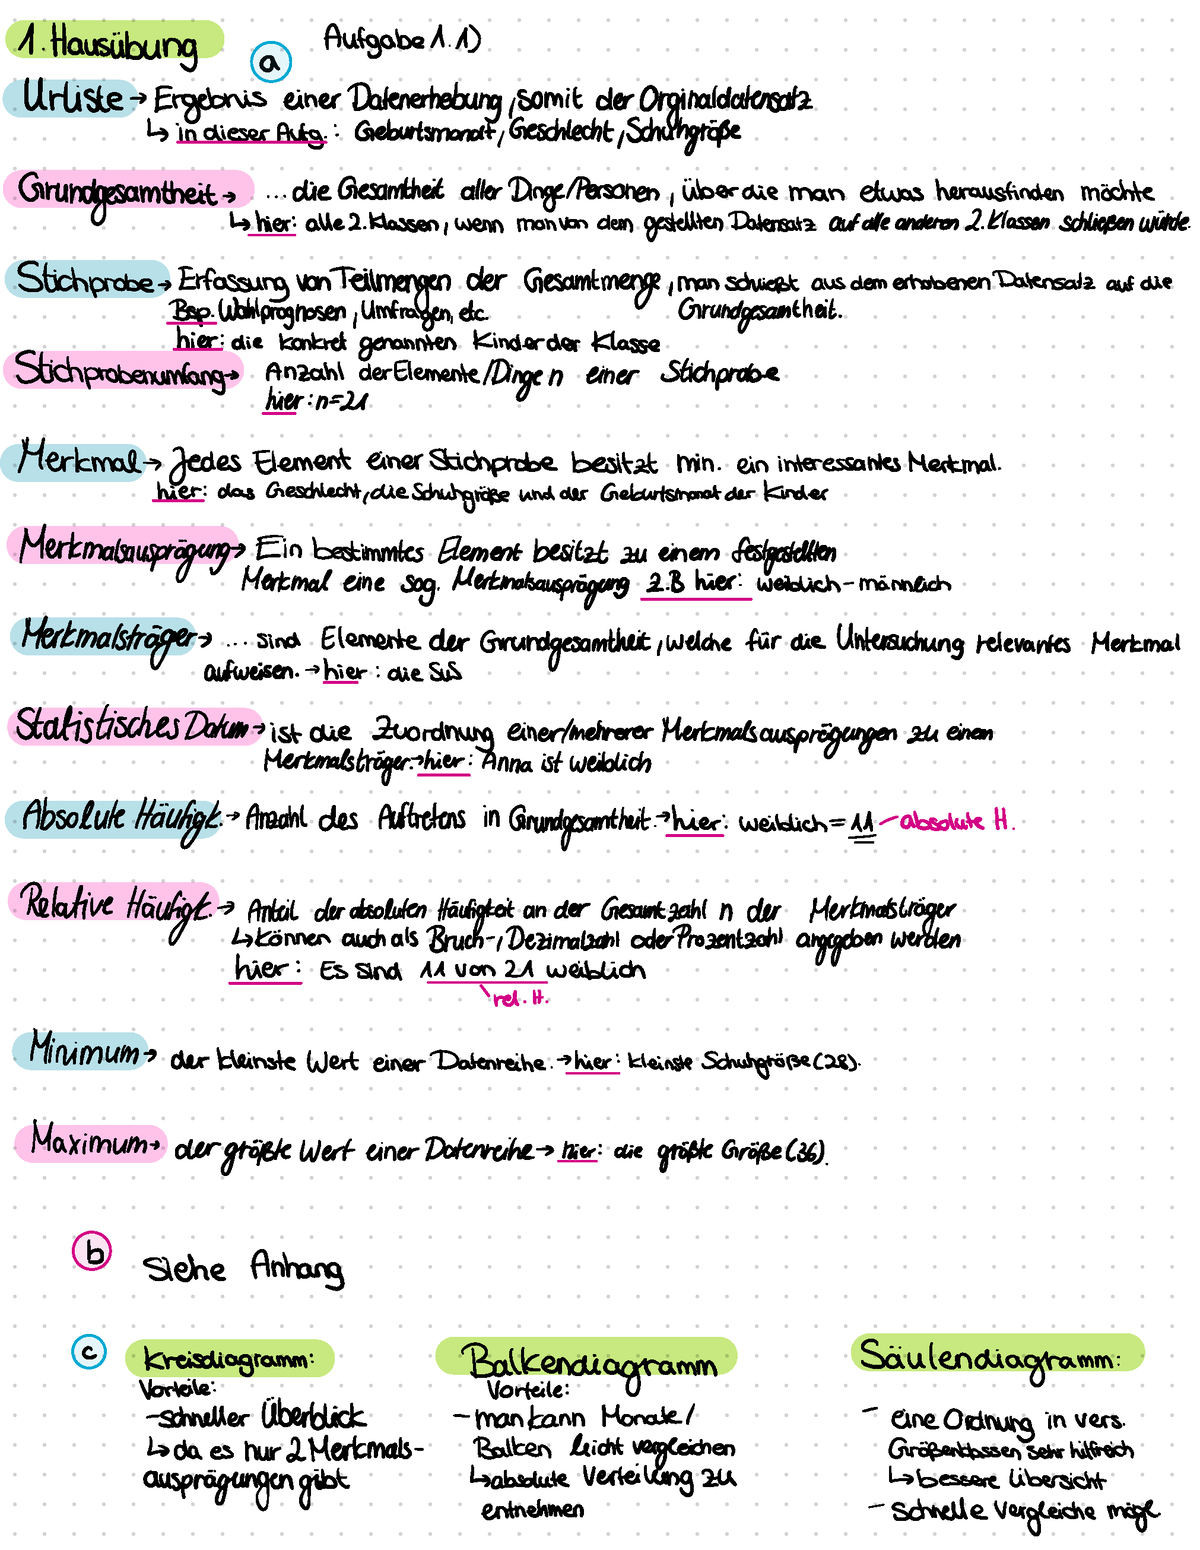 1. Hausübung
a
Aufgabe 1.1)
Urliste → Ergebnis einer Datenerhebung, somit der Orginaldatensatz
↳ in dieser Aufg.: Geburtsmonat, Geschlecht, Schuhgröße
Grundgesamtheit → ... die Gesamtheit aller Dinge/Personen, über die man etwas herausfinden möchte
↳ hier: alle 2. Klassen, wenn man von dem gestellten Datensatz auf alle anderen 2. Klassen schließen würde.
Stichprobe → Erfassung von Teilmengen der Gesamtmenge, man schließt aus dem erhobenen Datensatz auf die
Bsp. Wahlprognosen, Umfragen, etc. Grundgesamtheit.
hier: die konkret genannten Kinder der Klasse
Stichprobenumfang → Anzahl der Elemente/Dinge n einer Stichprobe
hier: n=21
Merkmal → Jedes Element einer Stichprobe besitzt min. ein interessantes Merkmal.
hier: das Geschlecht, die Schuhgröße und der Geburtsmonat der Kinder
Merkmalsausprägung → Ein bestimmtes Element besitzt zu einem festgestellten
Merkmal eine sog. Merkmalsausprägung z.B hier: weiblich - männlich
Merkmalsträger → ... sind Elemente der Grundgesamtheit, welche für die Untersuchung relevantes Merkmal
aufweisen. → hier: die SuS
Statistisches Datum → ist die Zuordnung einer/mehrerer Merkmalsausprägungen zu einen
Merkmalsträger. → hier: Anna ist weiblich
Absolute Häufigk. → Anzahl des Auftretens in Grundgesamtheit. → hier: weiblich = 11 - absolute H.
Relative Häufigk. → Anteil der absoluten Häufigkeit an der Gesamtzahl n der Merkmalsträger
↳ können auch als Bruch-, Dezimalzahl oder Prozentzahl angegeben werden
hier: Es sind 11 von 21 weiblich
rel. H.
Minimum → der kleinste Wert einer Datenreihe. → hier: kleinste Schuhgröße (28).
Maximum → der größte Wert einer Datenreihe → hier: die größte Größe (36).
b
Siehe Anhang
c
Kreisdiagramm:
Vorteile:
- schneller Überblick
↳ da es nur 2 Merkmals-
ausprägungen gibt
Balkendiagramm
Vorteile:
- man kann Monate /
Balken leicht vergleichen
↳ absolute Verteilung zu
entnehmen
Säulendiagramm:
- eine Ordnung in vers.
Größenklassen sehr hilfreich
↳ bessere Übersicht
- schnelle Vergleiche mögl